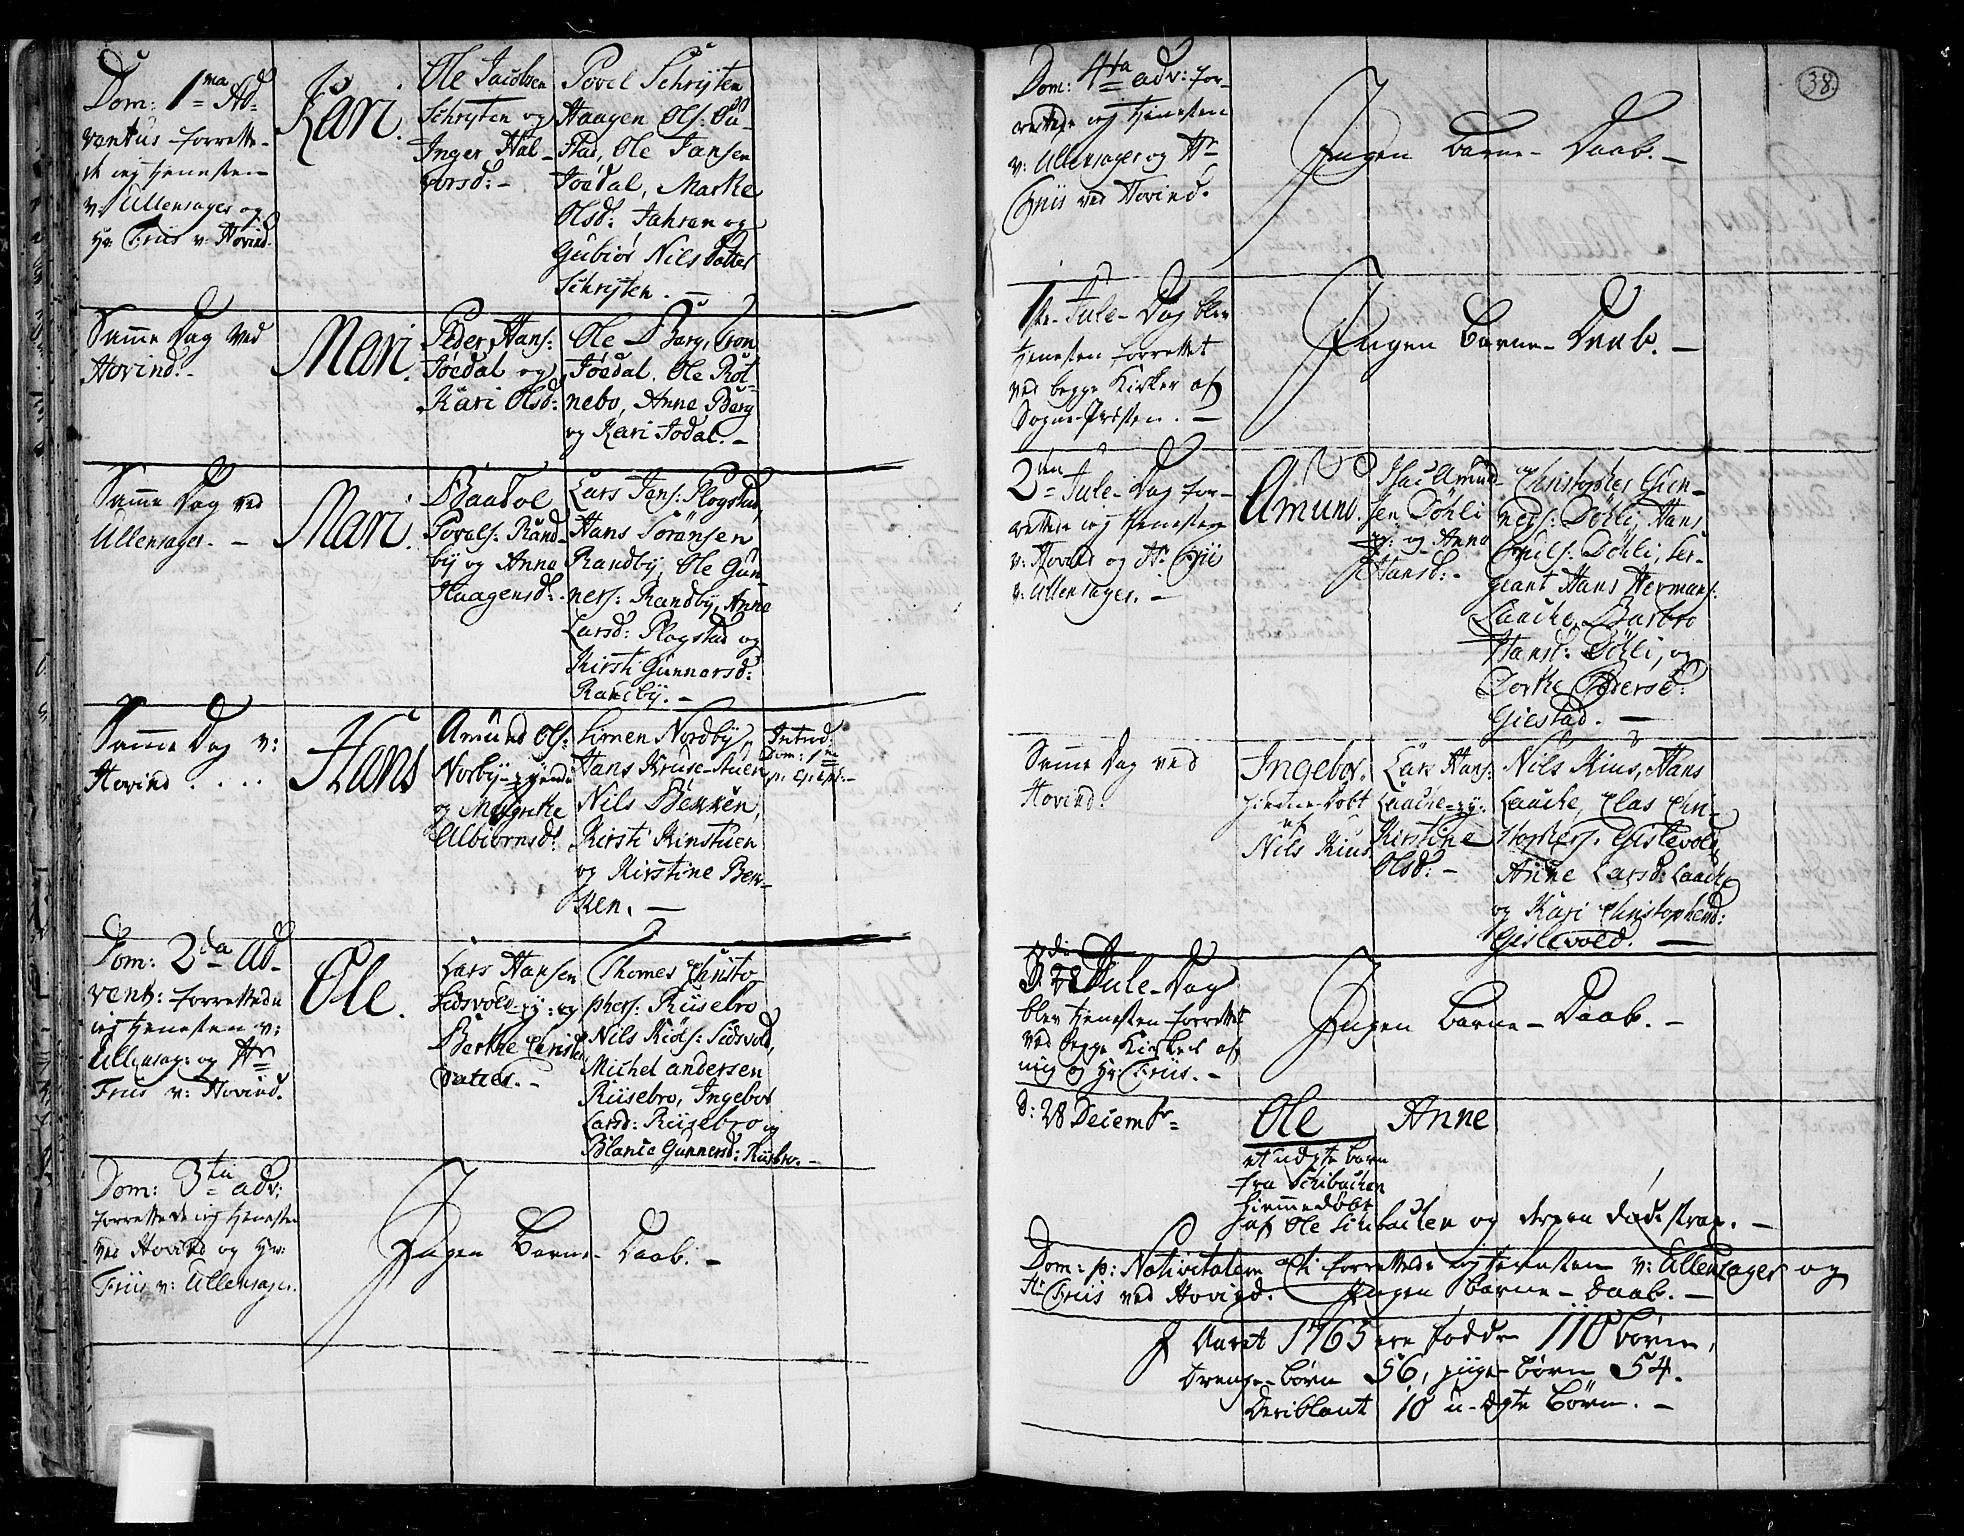 Dom: 1ma Ad-
ventus forrette-
de ieg tienesten
v: Ullensager og
Hr: Friis v: Hovind.
Kari.
Ole Jacobsen
Schryten og
Inger Hal-
vorsd: -
Povel Schryten
Haagen Ols:
stad, Ole Jansen
Joedal, Marthe
Olsd: Jahren og
Gubiør Nils Datter
Schryten. -
Samme Dag ved
Hovind. -
Mari.
Peder Hans:
Joedal og
Kari Olsd:
Ole Berg, Tron
Joedal, Ole Rot-
nebo, Anne Berg
og Kari Jodal. -
Samme Dag ved
Ullensager. -
Mari.
Baadol
Povels: Rand-
by og Anne
Haagensd: -
Lars Jens: Plogstad,
Hans Sörensen
Randby, Ole Gun-
ners: Randby, Anne
Larsd: Plogstad og
Kirsti Gunnersd:
Randby. -
Samme Dag v:
Hovind . . . .
Hans
Amund Ols:
Norby
og Margrethe
Albiornsd:
Simen Nordby,
Hans Kruse-
Nils Berken,
Kirsti Kinstuen
og Kirstine Ber-
ken. -
Introd:
Dom: 1ma
p: Epiph: -
Dom: 2da Ad-
vent: forrettede
ieg tienesten v:
Ullensag: og Hr
Friis v: Hovind.
Ole.
Lars Hansen
Sidsvold - og
Berthe Christo
Datter. -
Thomes Christo
phers: Riisebro
Nils Sidsvold,
Michel andersen
Riisebro, Ingebor
Larsd: Riisebro og
Blancia Gunnersd: Riisbro. -
Dom: 3tia adv:
forrettede ieg tienesten
ved Hovind og Hr:
Friis v: Ullensager.
Ingen Barne-Daab. -
38.
Dom: 4ta adv: for-
rettede ieg tienesten
v: Ullensager og Hr
Friis ved Hovind.
Ingen Barne-Daab. -
1ste Jule-Dag blev
tienesten forrettet
ved begge Kirker af
Sogne-Præsten. -
Ingen Barne-Daab. -
2den Jule-Dag for-
rettede ieg tienesten
v: Hovind og Hr Friis
v: Ullensager. -
Amund.
Isac Amund-
sen Döhli
og Anne
Hansd: -
Christopher Gun-
ners: Döhli, Hans
Emils: Döhli, Ser-
geant Hans Hermans:
Laache, Barbro
Hansd: Döhli, og
Dorthe Pedersd:
Giestad. -
Samme Dag ved
Hovind.
Ingebor.
hiemme-Döbt
af
Nils Kius
Lars Hans:
Laache -
Kirstine
Olsd: -
Nils Kius, Hans
Laache, Clas Chri-
stophers: Gislevold,
Anne Larsd: Laache
og Kari Christophersd:
Gislevold. -
3die Jule-Dag
blev tienesten forrettet
ved begge Kirker af
mig og Hr: Friis. -
Ingen Barne-Daab. -
D: 28 Decembr
Ole Anne
et uægte barn
fra Schibachen
hiemmedöbt
af Ole Schibachen og derpaa döde strax. -
Dom: p: Nativitatem Chi forrettede ieg tienesten v: Ullensager og
Hr Friis ved Hovind. Ingen Barne-Daab. -
I Aaret 1765 ere födde 110 börn,
Drenge-börn 56, pige-börn 54.
Deriblant 10 u-ægte börn. -